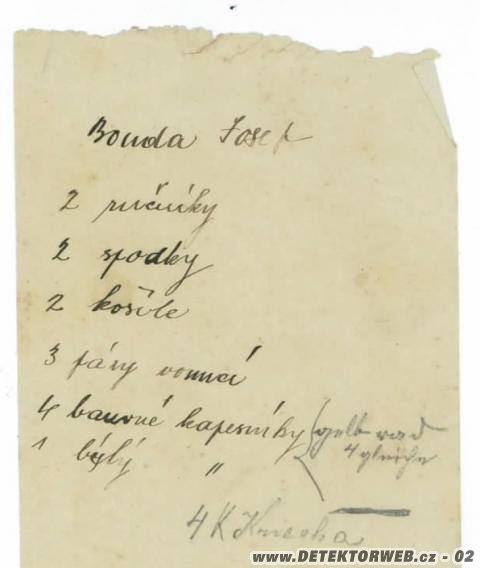 Bouda Josef
2 ručníky
2 spodky
2 košile
3 páry onucí
4 barevné kapesníky
1 bílý "
gelb
4 gleiche
4 K
www.DETEKTORWEB.cz - 02